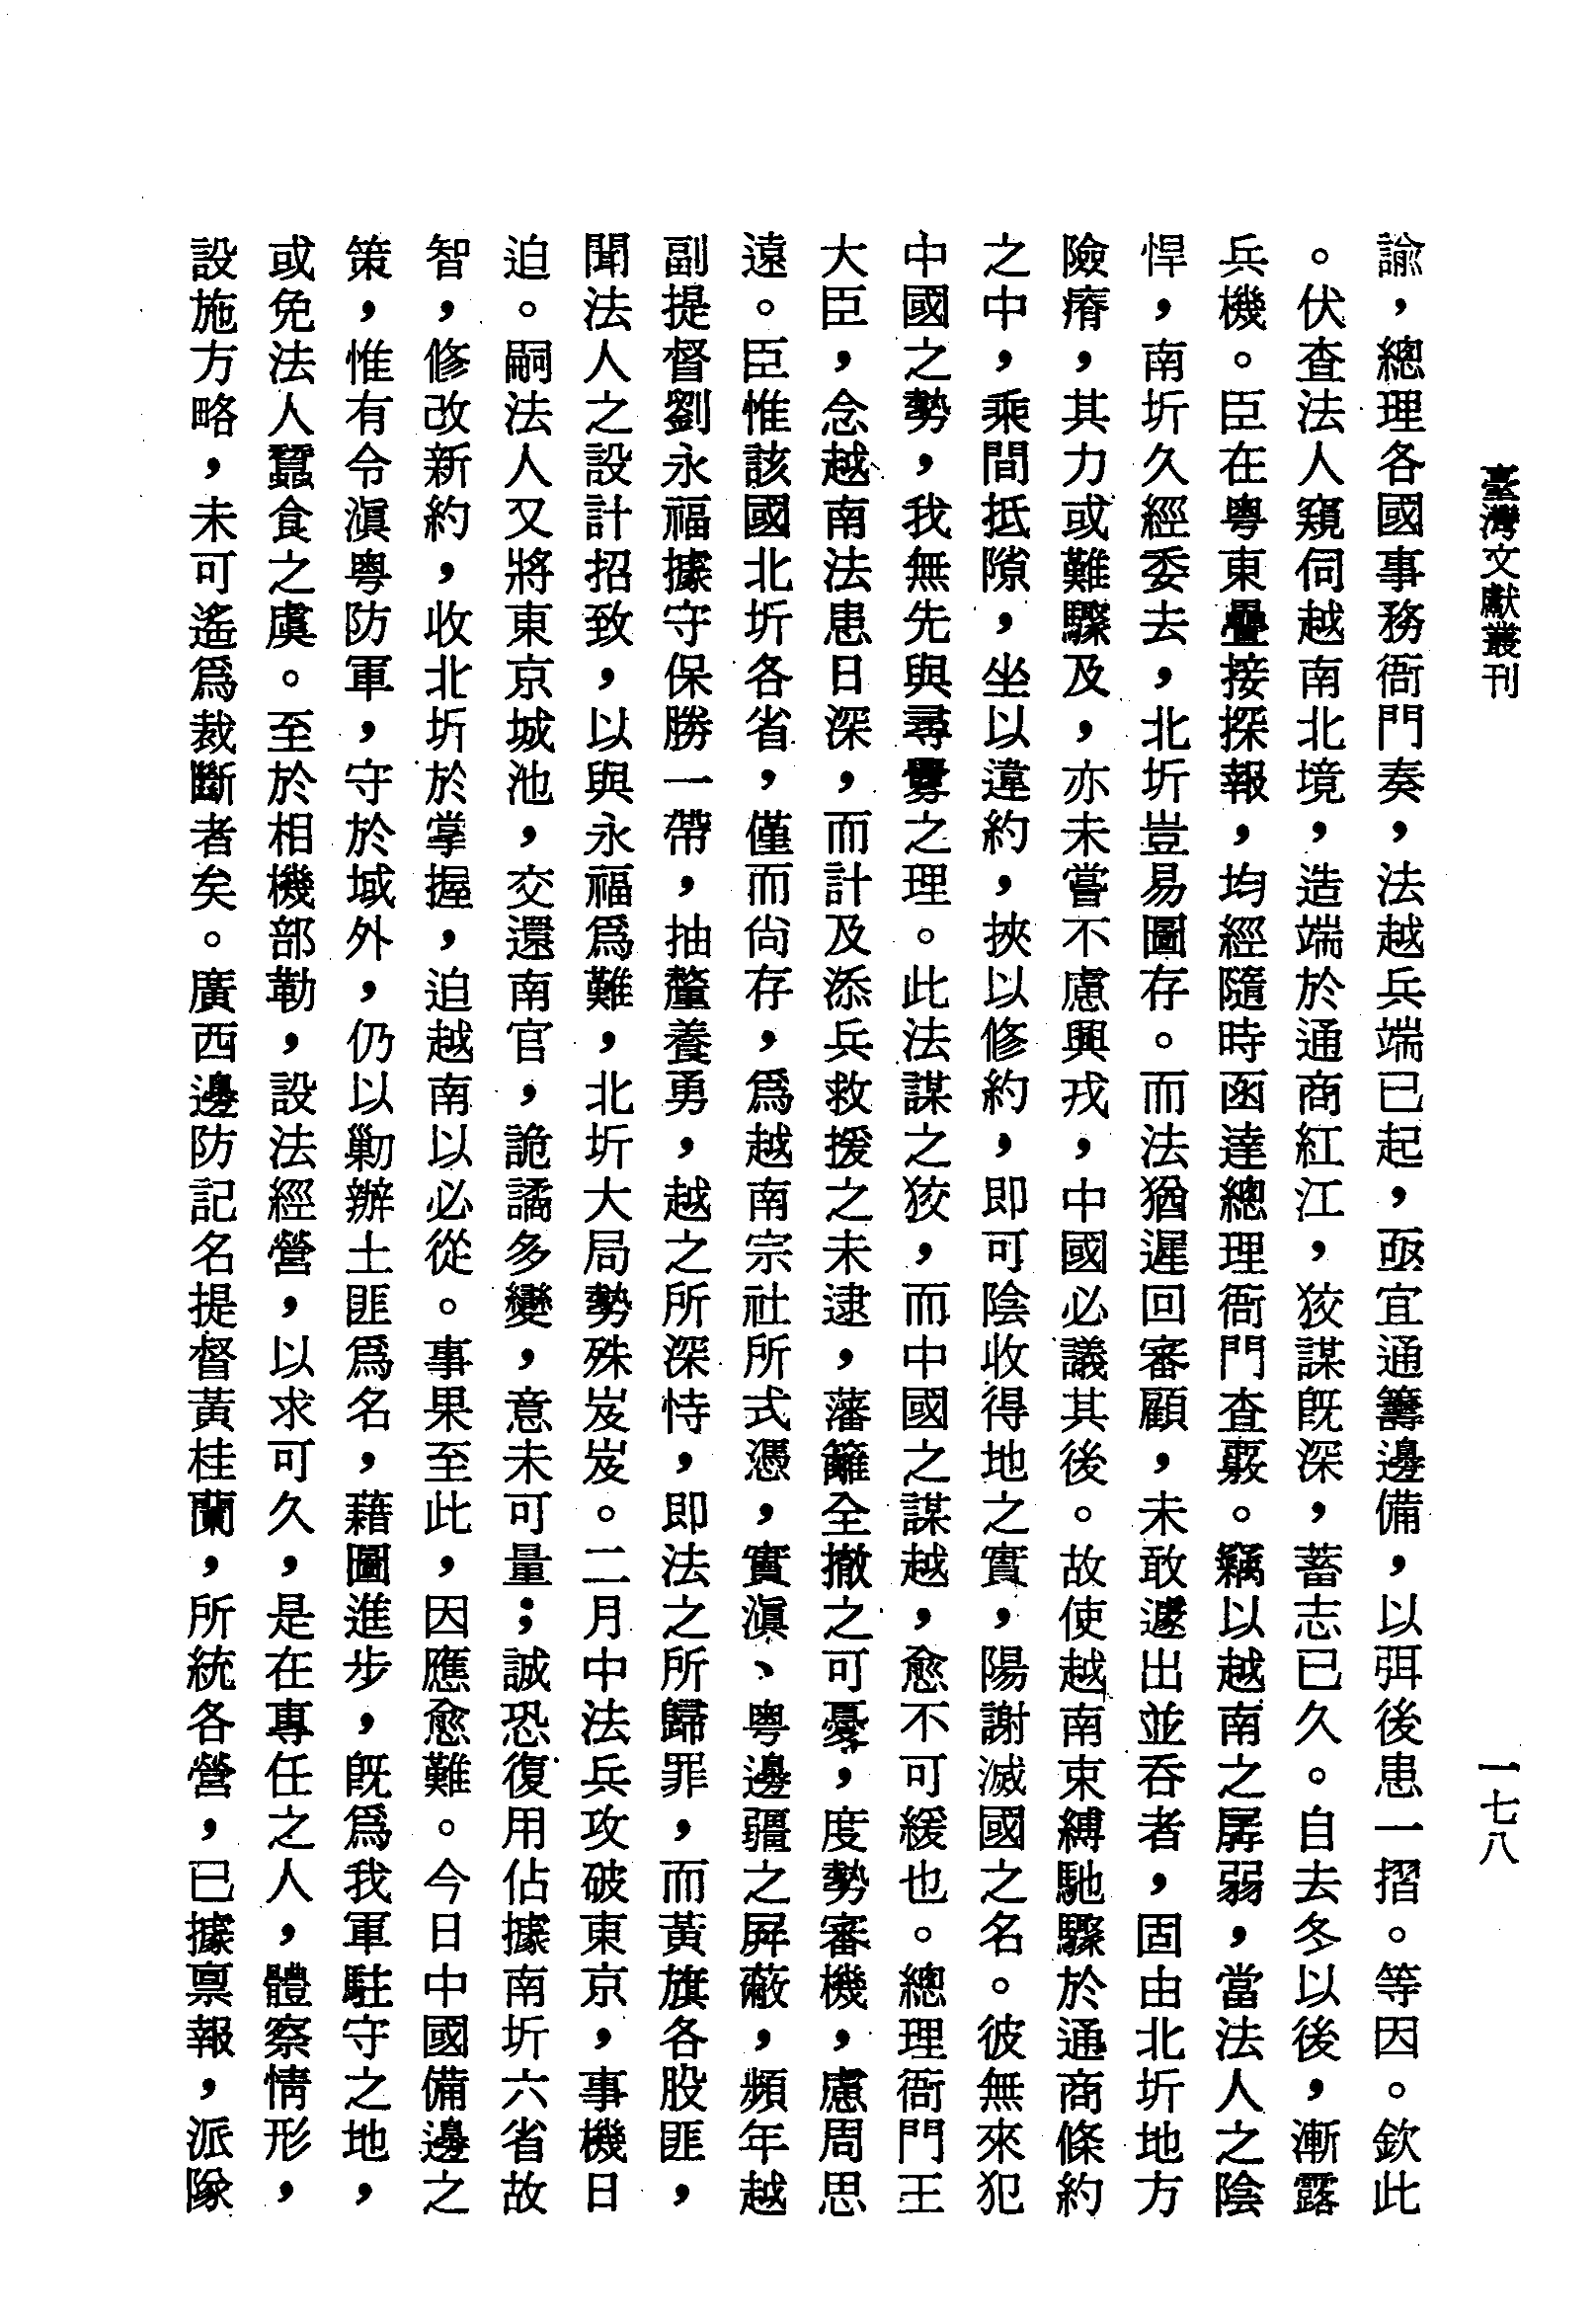 臺灣文獻叢刊
一七八
諭，總理各國事務衙門奏，法越兵端已起，亟宜通籌邊備，以弭後患一摺。等因。欽此
。伏查法人窺伺越南北境，造端於通商紅江，狡謀旣深，蓄志已久。自去冬以後，漸露
兵機。臣在粤東疊接探報，均經隨時函達總理衙門查覈。竊以越南之孱弱，當法人之陰
悍，南圻久經委去，北圻豈易圖存。而法猶遲回審顧，未敢遽出並吞者，固由北圻地方
險瘠，其力或難驟及，亦未嘗不慮興戎，中國必議其後。故使越南束縛馳驟於通商條約
之中，乘間抵隙，坐以違約，挾以修約，即可陰收得地之實，陽謝滅國之名。彼無來犯
中國之勢，我無先與尋釁之理。此法謀之狡，而中國之謀越，愈不可緩也。總理衙門王
大臣，念越南法患日深，而計及添兵救援之未逮，藩籬全撤之可憂，度勢審機，慮周思
遠。臣惟該國北圻各省，僅而尙存，爲越南宗社所式憑，實滇、粤邊疆之屏蔽，頻年越
副提督劉永福據守保勝一帶，抽釐養勇，越之所深恃，即法之所歸罪，而黃旗各股匪，
聞法人之設計招致，以與永福爲難，北圻大局勢殊岌岌。二月中法兵攻破東京，事機日
迫。嗣法人又將東京城池，交還南官，詭譎多變，意未可量；誠恐復用佔據南圻六省故
智，修改新約，收北圻於掌握，迫越南以必從。事果至此，因應愈難。今日中國備邊之
策，惟有令滇粤防軍，守於域外，仍以勦辦土匪爲名，藉圖進步，旣爲我軍駐守之地，
或免法人蠶食之虞。至於相機部勒，設法經營，以求可久，是在專任之人，體察情形，
設施方略，未可遙爲裁斷者矣。廣西邊防記名提督黃桂蘭，所統各營，已據禀報，派隊